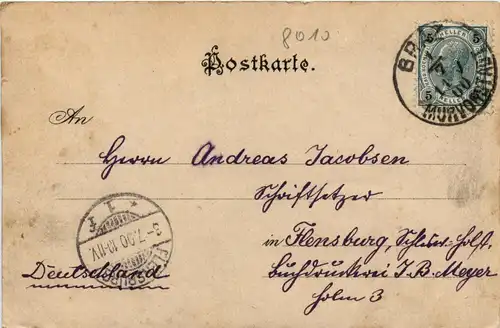 8010
Postkarte.
5 HELLER 5
An
Herrn Andreas Jacobsen
Schriftsetzer
in Flensburg, Schlesw. Holst.
Buchdruckerei J. B. Meyer
Holm 3
Deutschland
FLENSBURG
3-7.90.10-11V.
* 1 f